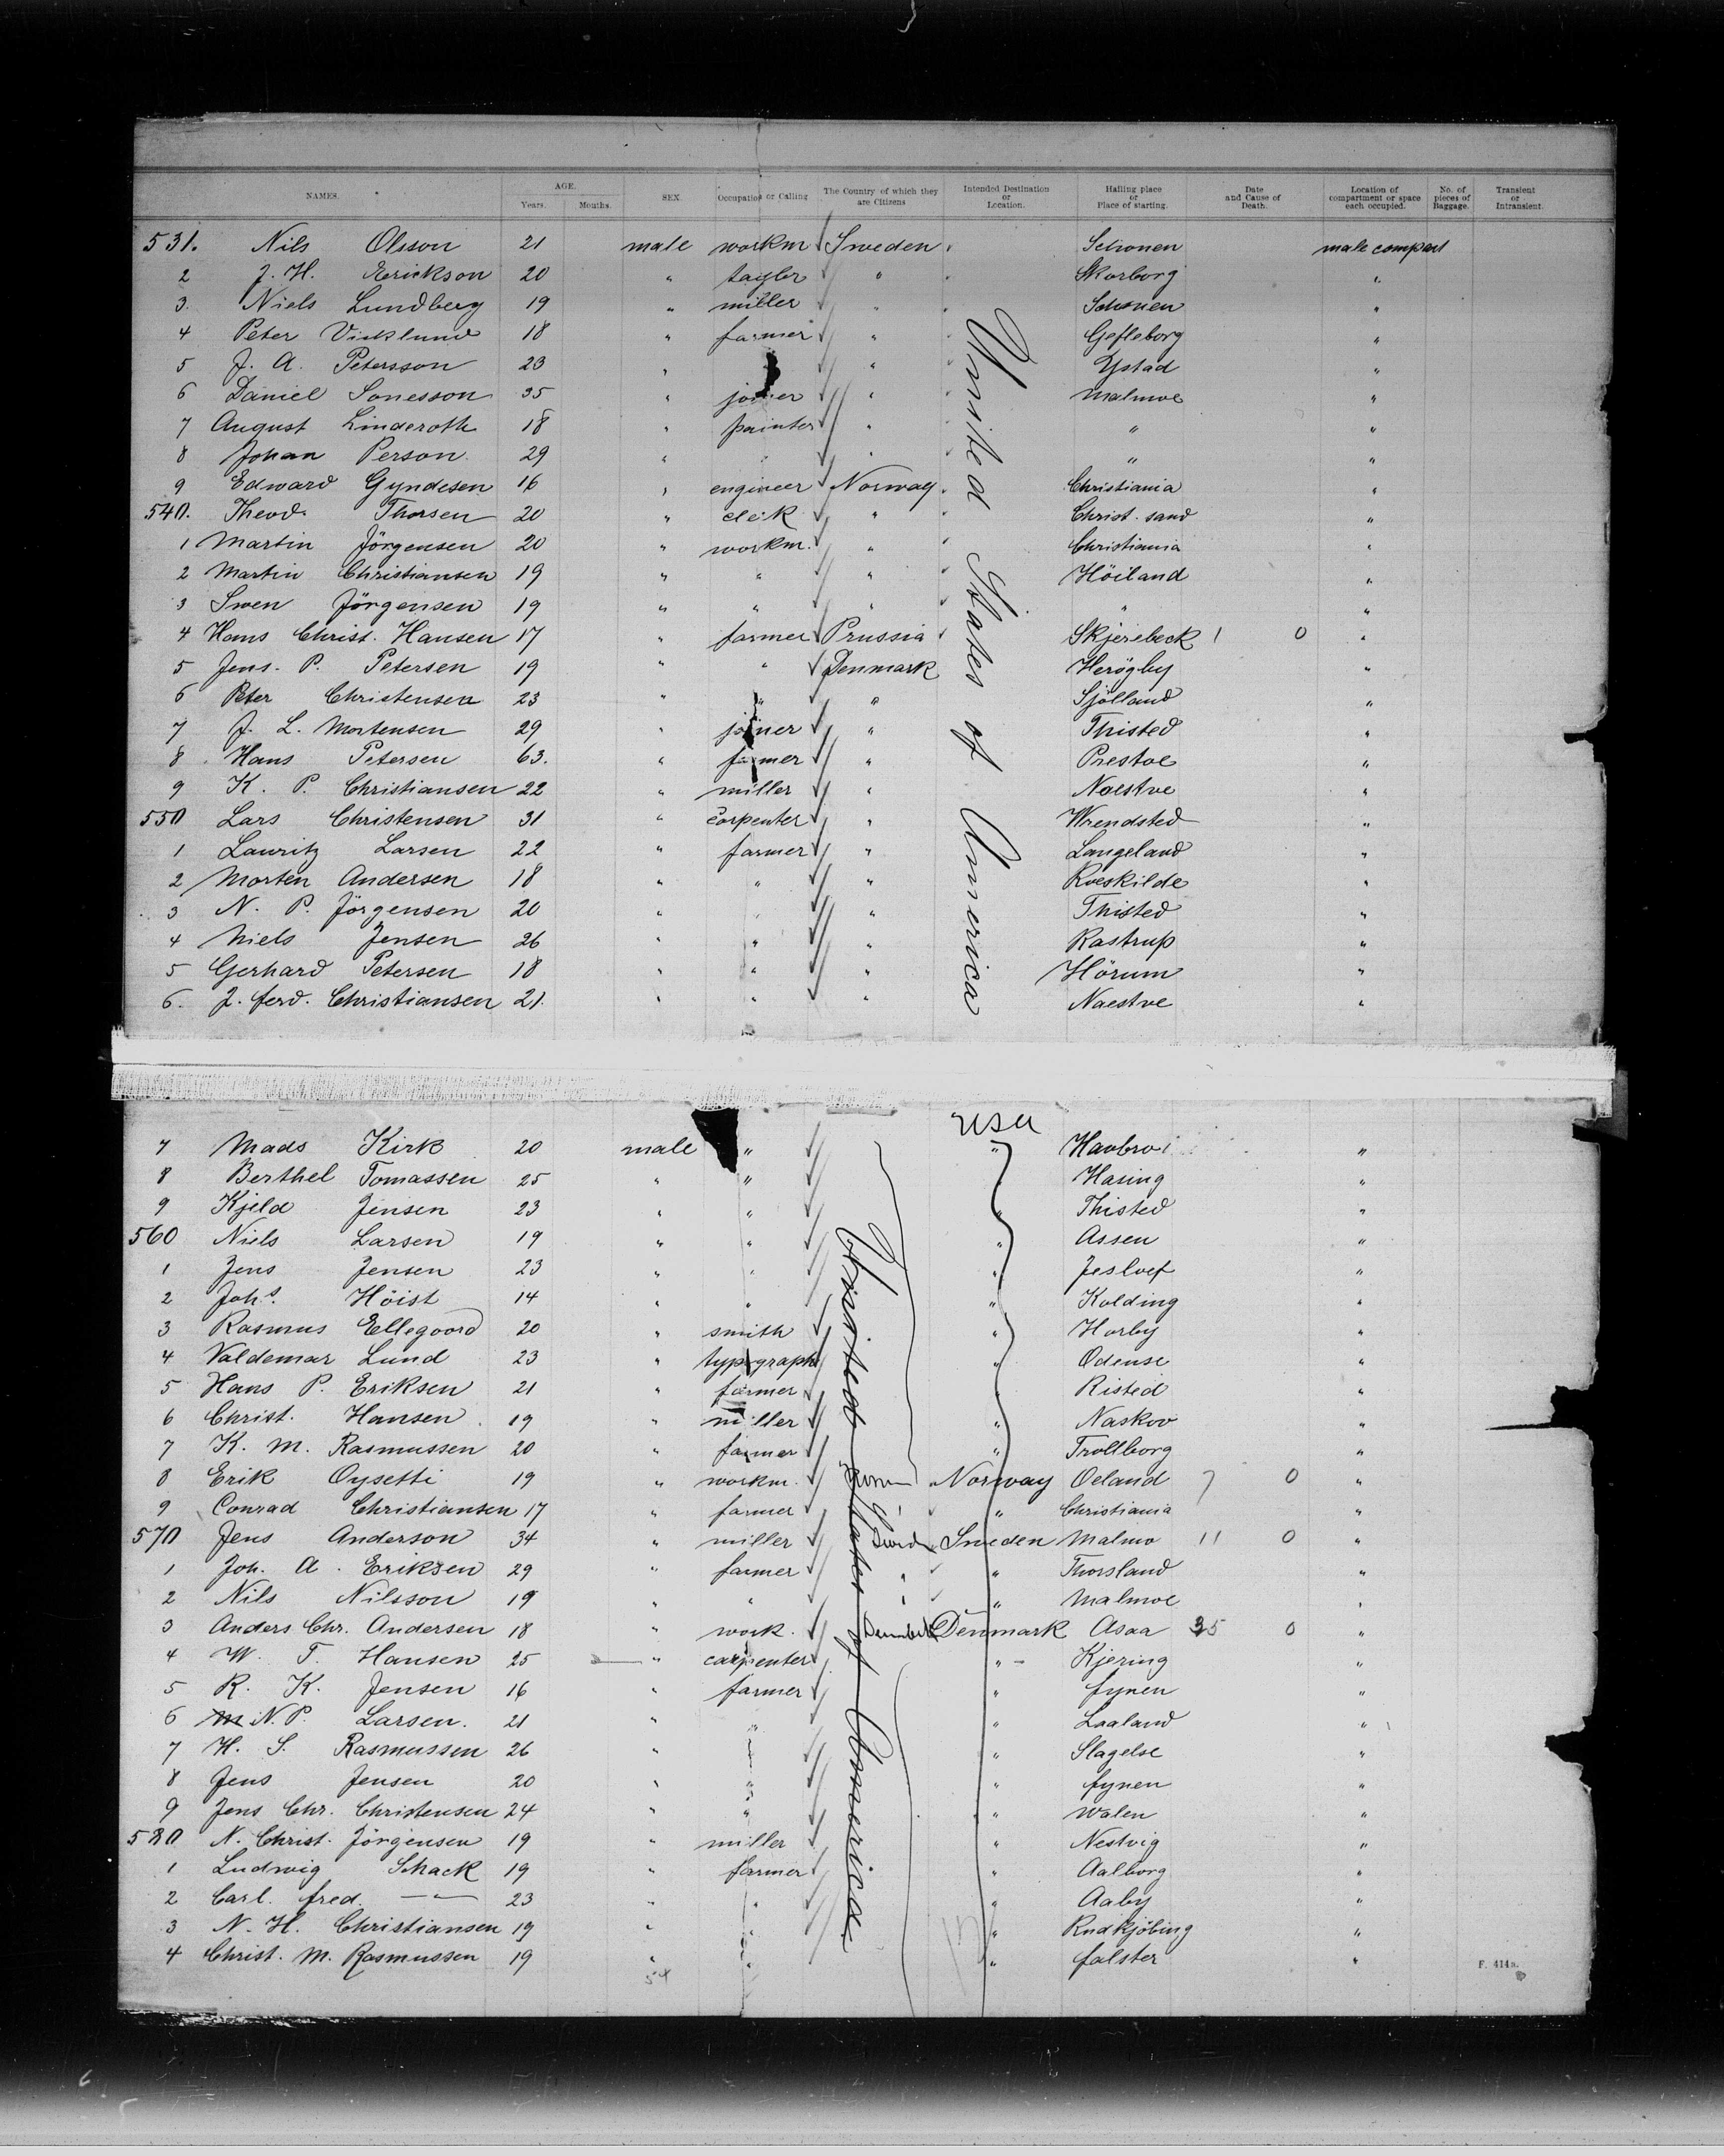 NAMES. AGE. Years. Months. SEX. Occupation or Calling The Country of which they are Citizens Intended Destination or Location. Hailing place or Place of starting. Date and Cause of Death. Location of compartment or space each occupied. No. of pieces of Baggage. Transient or Intransient.
531. Nils Olsson 21 male workm Sweden Schonen male compart
2 J. H. Erickson 20 " taylor " Skarborg "
3. Niels Lundberg 19 " miller " Schonen "
4 Peter Vicklund 18 " farmer " Gefleborg "
5 J. A. Petersson 23 " " Ystad "
6 Daniel Sonesson 35 " joiner " Malmoe "
7 August Linderoth 18 " painter " " "
8 Johan Person 29 " " " " "
9 Edward Gyndesen 16 " engineer Norway Christiania "
540. Theod. Thorsen 20 " clerk " Christ. sand "
1 Martin Jörgensen 20 " workm. " Christiania "
2 Martin Christiansen 19 " " " Höiland "
3 Swen Jörgensen 19 " " " " "
4 Hans Christ. Hansen 17 " farmer Prussia Skjerebeck 1 0 "
5 Jens. P. Petersen 19 " " Denmark Herögby "
6 Peter Christensen 23 " " " Sjölland "
7 J. L. Mortensen 29 " joiner " Thisted "
8 Hans Petersen 63. " farmer " Prestoe "
9 K. P. Christiansen 22 " miller " Noestve "
550 Lars Christensen 31 " carpenter " Wrendsted "
1 Lauritz Larsen 22 " farmer " Langeland "
2 Morten Andersen 18 " " " Roeskilde "
3 N. P. Jörgensen 20 " " " Thisted "
4 Niels Jensen 26 " " " Rastrup "
5 Gerhard Petersen 18 " " " Hörum "
6. J. ferd. Christiansen 21. " " " Naestve "
United States of America
USA
7 Mads Kirk 20 male " " "
8 Berthel Tomassen 25 " " " Hasing "
9 Kjeld Jensen 23 " " " Thisted "
560 Niels Larsen 19 " " " Assen "
1 Jens Jensen 23 " " " "
2 Johs. Höist 14 " " " Kolding "
3 Rasmus Ellegaard 20 " smith " Horby "
4 Valdemar Lund 23 " typograph " Odense "
5 Hans P. Eriksen 21 " farmer " Risted "
6 Christ. Hansen 19 " miller " Naskov "
7 K. M. Rasmussen 20 " farmer " Trollborg "
8 Erik Oysetti 19 " workm. Norway Oeland 7 0 "
9 Conrad Christiansen 17 " farmer " Christiania "
570 Jens Anderson 34 " miller Swed Sweden Malmo 11 0 "
1 Joh. A. Eriksen 29 " farmer " " Thorsland "
2 Nils Nilsson 19 " " " " Malmoe "
3 Anders Chr. Andersen 18 " work. Denmark Asaa 35 0 "
4 W. T. Hansen 25 " carpenter " Kjering "
5 R. K. Jensen 16 " farmer " fynen "
6 N. P. Larsen. 21 " " " Laaland "
7 H. S. Rasmussen 26 " " " Slagelse "
8 Jens Jensen 20 " " " fynen "
9 Jens Chr. Christensen 24 " " " Walen "
580 N. Christ. Jörgensen 19 " miller " Nestvig "
1 Ludwig Schack 19 " farmer " Aalborg "
2 Carl. fred. — " — 23 " " " Aaby "
3 N. H. Christiansen 19 " " " Rudkjöbing "
4 Christ. M. Rasmussen 19 " " " falster "
United States of America
54
F. 414a.